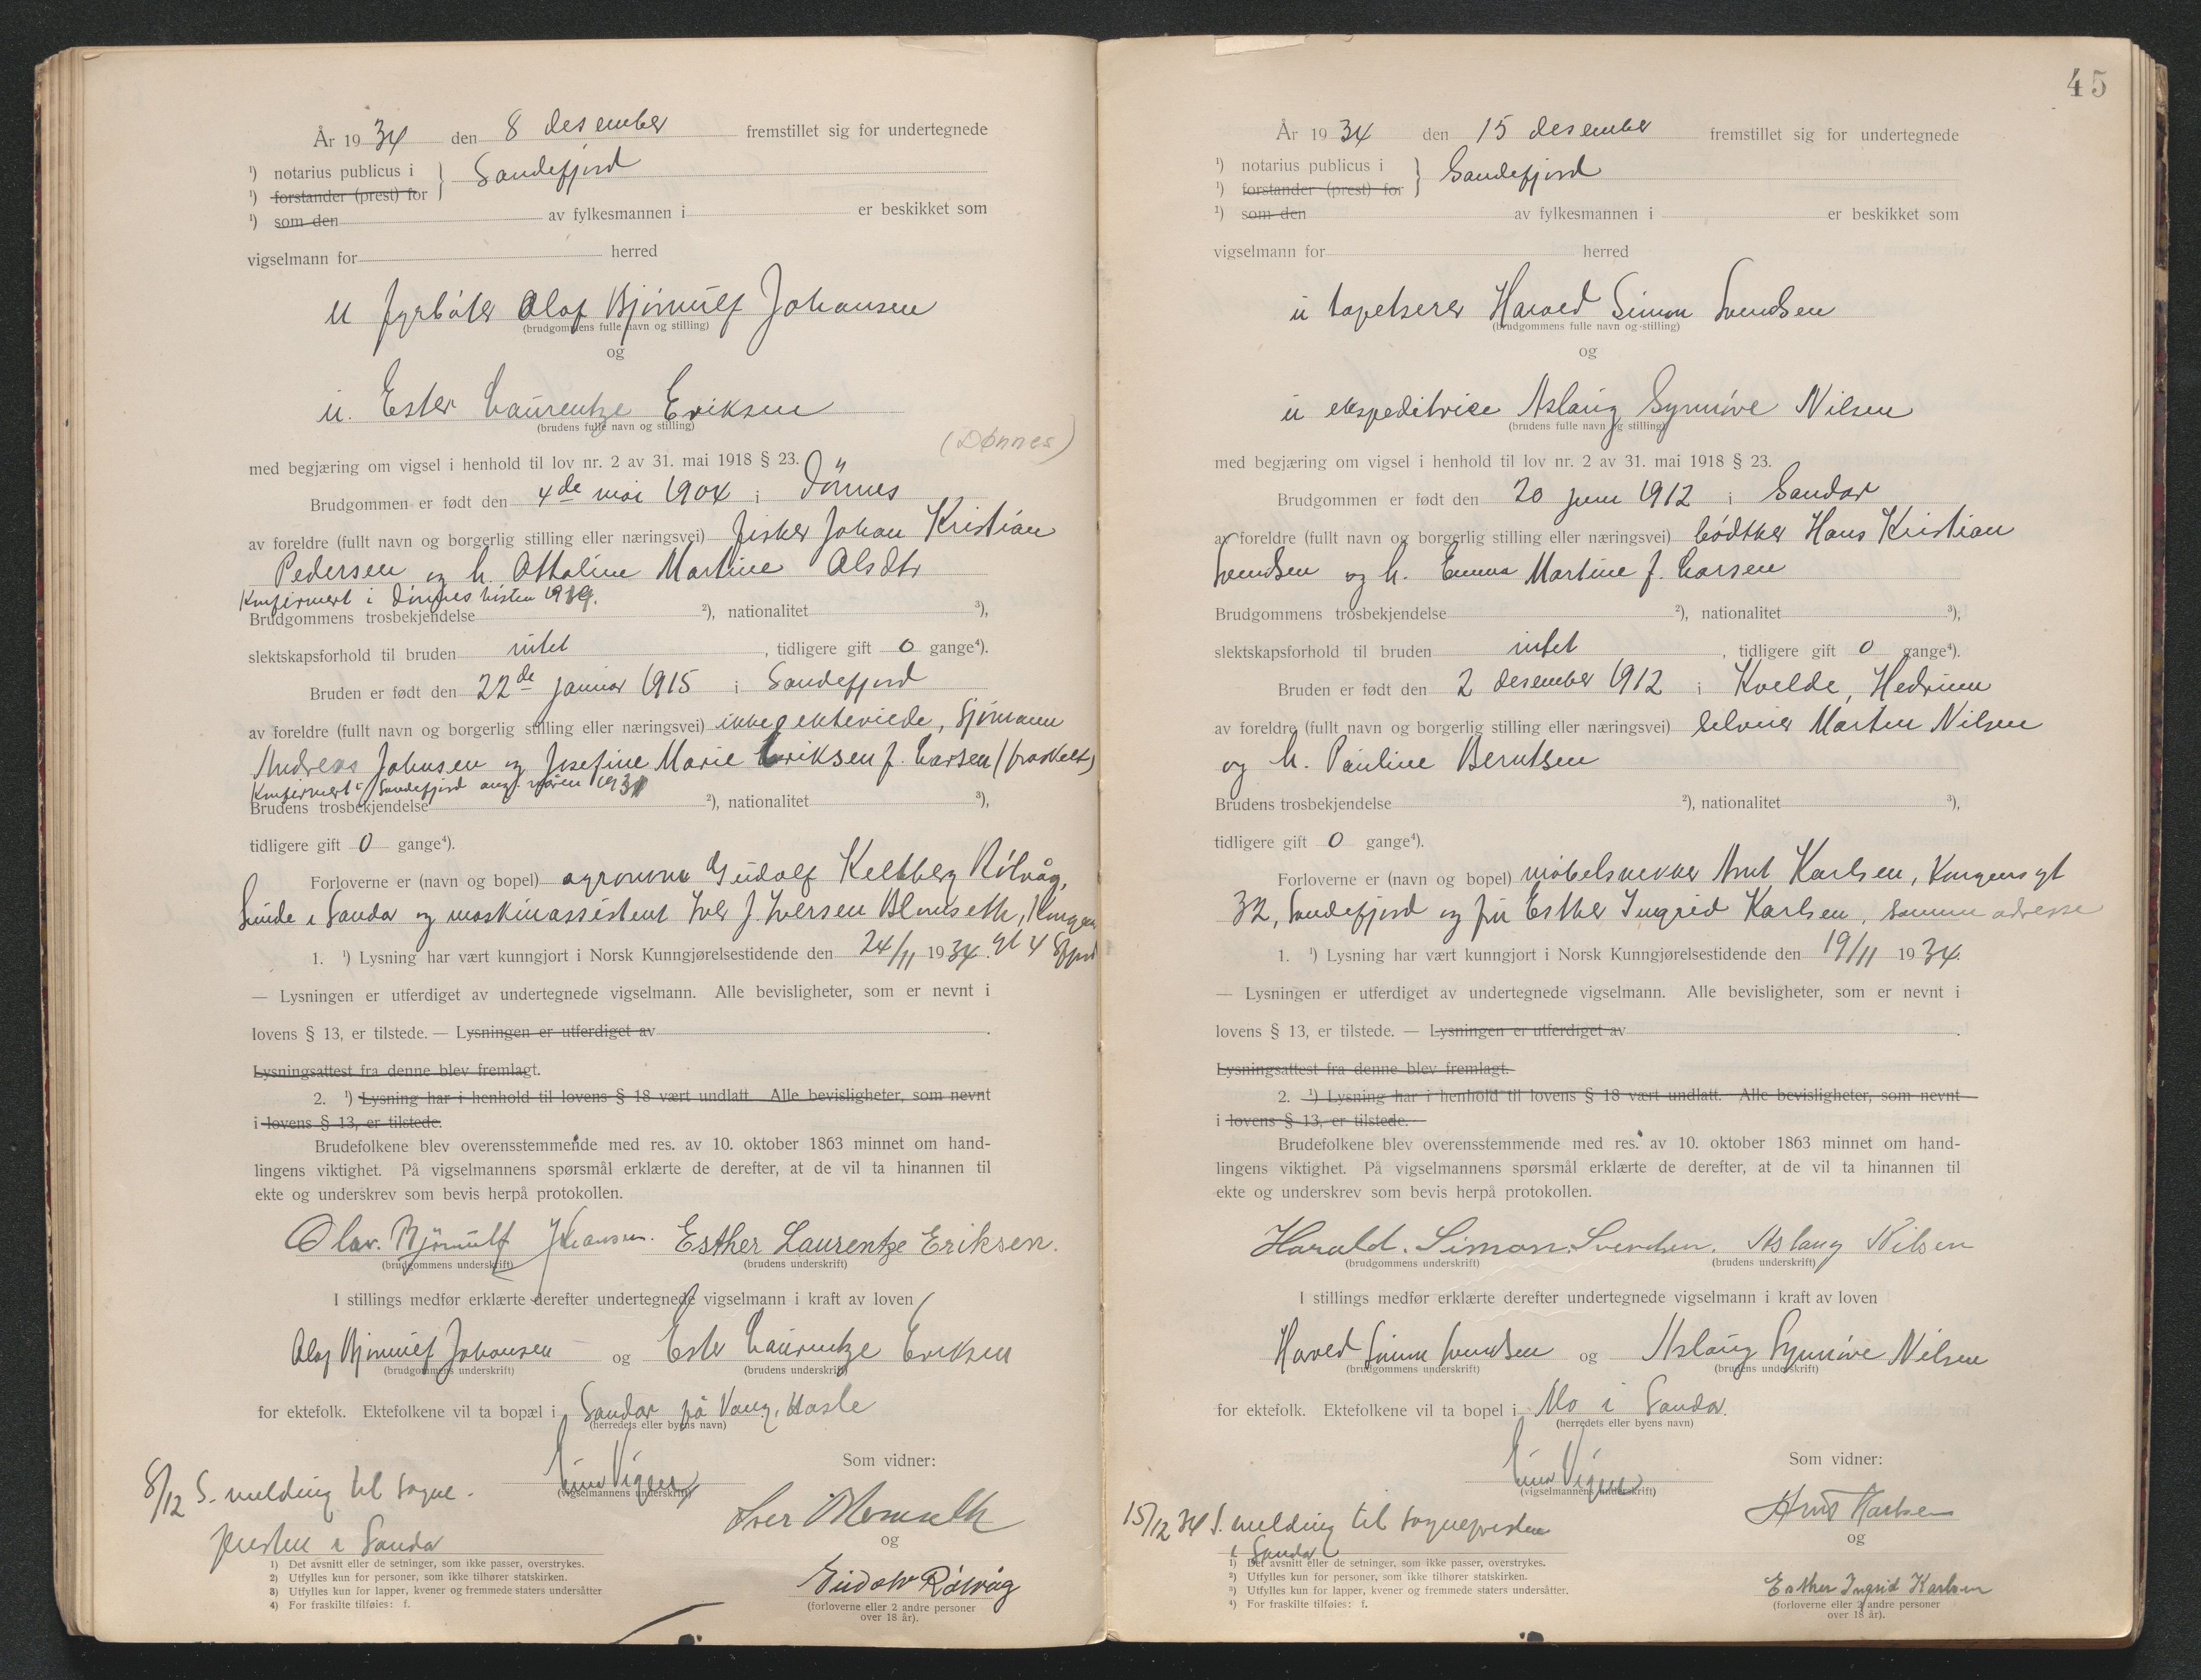 År 1934 den 8 desember fremstillet sig for undertegnede
¹) notarius publicus i } Sandefjord
¹) forstander (prest) for
¹) som den av fylkesmannen i er beskikket som
vigselmann for herred
u fyrbøter Olaf Bjørnulf Johansen
(brudgommens fulle navn og stilling)
og
u. Ester Laurentze Eriksen
(brudens fulle navn og stilling)
(Dønnes)
med begjæring om vigsel i henhold til lov nr. 2 av 31. mai 1918 § 23.
Brudgommen er født den 4de mai 1904 i Dönnes
av foreldre (fullt navn og borgerlig stilling eller næringsvei) fisker Johan Kristian
Pedersen og h. Ottoline Martine Olsdtr
Konfirmert i Dönnes høsten 1919.
Brudgommens trosbekjendelse ²), nationalitet ³),
slektskapsforhold til bruden intet, tidligere gift 0 gange⁴).
Bruden er født den 22de januar 1915 i Sandefjord
av foreldre (fullt navn og borgerlig stilling eller næringsvei) ikke ekteviede, sjømann
Andreas Johnsen og Josefine Marie Eriksen f. Larsen (fraskelt)
Konfirmert i Sandefjord våren 1931
Brudens trosbekjendelse ²), nationalitet ³),
tidligere gift 0 gange⁴).
Forloverne er (navn og bopel) agronom Gudolf Keltberg Rölvåg,
i Sandar og maskinassistent Iver J. Iversen Blomseth, Kongens
gt 4 Sfjord
1. ¹) Lysning har vært kunngjort i Norsk Kunngjørelsestidende den 24/11 1934.
— Lysningen er utferdiget av undertegnede vigselmann. Alle bevisligheter, som er nevnt i
lovens § 13, er tilstede. — Lysningen er utferdiget av .
Lysningsattest fra denne blev fremlagt.
2. ¹) Lysning har i henhold til lovens § 18 vært undlatt. Alle bevisligheter, som nevnt
i lovens § 13, er tilstede.
Brudefolkene blev overensstemmende med res. av 10. oktober 1863 minnet om hand-
lingens viktighet. På vigselmannens spørsmål erklærte de derefter, at de vil ta hinannen til
ekte og underskrev som bevis herpå protokollen.
Olav. Bjørnulf Johansen. Esther Laurentze Eriksen.
(brudgommens underskrift) (brudens underskrift)
I stillings medfør erklærte derefter undertegnede vigselmann i kraft av loven
Olaf Bjørnulf Johansen og Ester Laurentze Eriksen
(brudgommens underskrift) (brudens underskrift)
for ektefolk. Ektefolkene vil ta bopæl i Sandar på Vang, Hasle
(herredets eller byens navn)
Som vidner:
8/12 S. melding til sogne-
presten i Sandar
(vigselmannens underskrift)
Iver Blomseth
og
Gudolv Rölvåg
(forloverne eller 2 andre personer
over 18 år).
1) Det avsnitt eller de setninger, som ikke passer, overstrykes.
2) Utfylles kun for personer, som ikke tilhører statskirken.
3) Utfylles kun for lapper, kvener og fremmede staters undersåtter
4) For fraskilte tilføies: f.
45
År 1934 den 15 desember fremstillet sig for undertegnede
¹) notarius publicus i } Sandefjord
¹) forstander (prest) for
¹) som den av fylkesmannen i er beskikket som
vigselmann for herred
u tapetserer Harald Simon Svendsen
(brudgommens fulle navn og stilling)
og
u ekspeditrice Aslaug Synnöve Nilsen
(brudens fulle navn og stilling)
med begjæring om vigsel i henhold til lov nr. 2 av 31. mai 1918 § 23.
Brudgommen er født den 20 juni 1912 i Sandar
av foreldre (fullt navn og borgerlig stilling eller næringsvei) bödtker Hans Kristian
Svendsen og h. Emma Martine f. Larsen
Brudgommens trosbekjendelse ²), nationalitet ³),
slektskapsforhold til bruden intet, tidligere gift 0 gange⁴).
Bruden er født den 2 desember 1912 i Kvelde, Hedrum
av foreldre (fullt navn og borgerlig stilling eller næringsvei) selveier Martin Nilsen
og h. Pauline Berntsen
Brudens trosbekjendelse ²), nationalitet ³),
tidligere gift 0 gange⁴).
Forloverne er (navn og bopel) møbelsnekker Arnt Karlsen, Kongensgt
32, Sandefjord og fru Esther Ingrid Karlsen, samme adresse
1. ¹) Lysning har vært kunngjort i Norsk Kunngjørelsestidende den 19/11 1934.
— Lysningen er utferdiget av undertegnede vigselmann. Alle bevisligheter, som er nevnt i
lovens § 13, er tilstede. — Lysningen er utferdiget av .
Lysningsattest fra denne blev fremlagt.
2. ¹) Lysning har i henhold til lovens § 18 vært undlatt. Alle bevisligheter, som nevnt
i lovens § 13, er tilstede.
Brudefolkene blev overensstemmende med res. av 10. oktober 1863 minnet om hand-
lingens viktighet. På vigselmannens spørsmål erklærte de derefter, at de vil ta hinannen til
ekte og underskrev som bevis herpå protokollen.
Harald. Simon. Svendsen. Aslaug Nilsen
(brudgommens underskrift) (brudens underskrift)
I stillings medfør erklærte derefter undertegnede vigselmann i kraft av loven
Harald Simon Svendsen og Aslaug Synnöve Nilsen
(brudgommens underskrift) (brudens underskrift)
for ektefolk. Ektefolkene vil ta bopel i Mo i Sandar.
(herredets eller byens navn)
Som vidner:
(vigselmannens underskrift)
15/12 34 S. melding til sognepresten
i Sandar
Arnt Karlsen
og
Esther Ingrid Karlsen
(forloverne eller 2 andre personer
over 18 år).
1) Det avsnitt eller de setninger, som ikke passer, overstrykes.
2) Utfylles kun for personer, som ikke tilhører statskirken.
3) Utfylles kun for lapper, kvener og fremmede staters undersåtter.
4) For fraskilte tilføies: f.